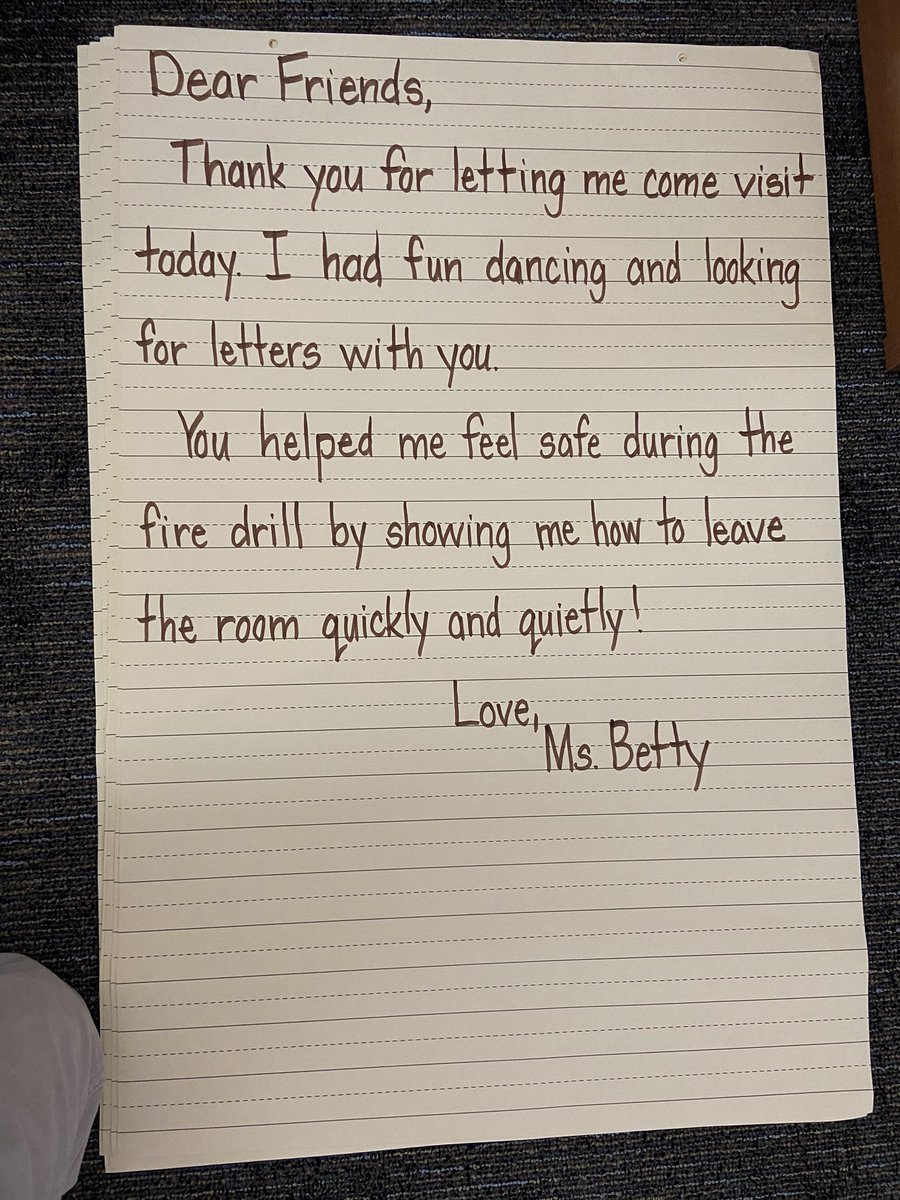 Dear Friends,
Thank you for letting me come visit
today. I had fun dancing and looking
for letters with you.
You helped me feel safe during the
fire drill by showing me how to leave
the room quickly and quietly!
Love,
Ms. Betty